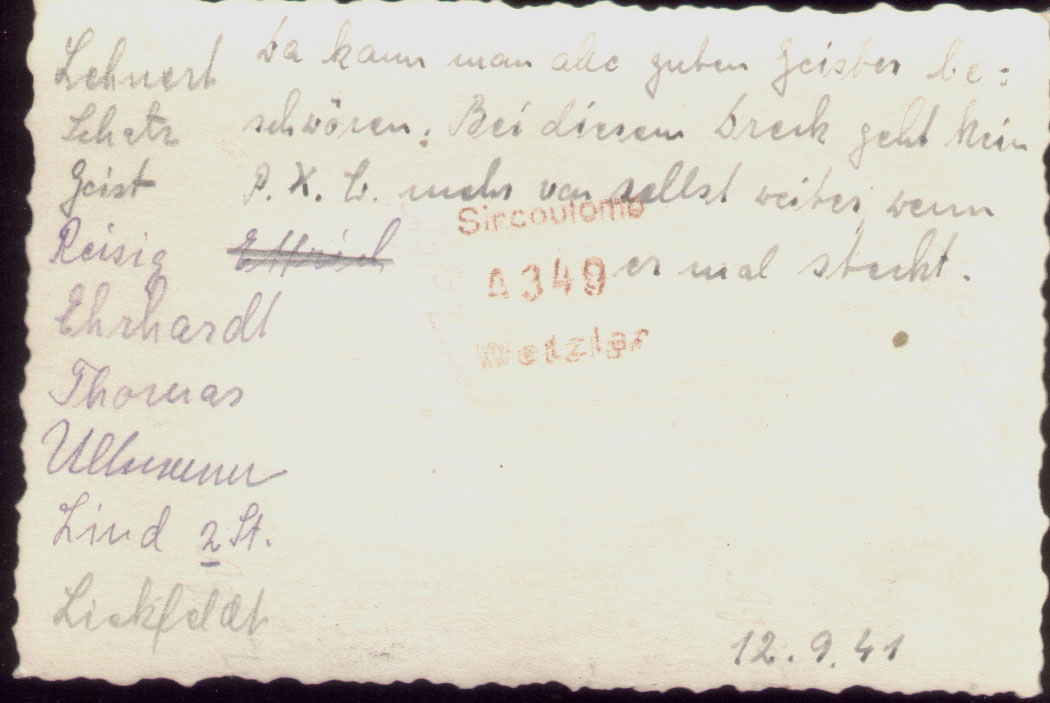 Da kann man alle guten Geister be-
schwören. Bei diesem Dreck geht kein
P.K.W. mehr von selbst weiter, wenn
er mal steckt.
Lehnert
Schatz
Geist
Reisig
Ehrhardt
Thomas
Ullmann
Lind 2 St.
Liekfeldt
Sircoulomb
A349
Wetzlar
12.9.41